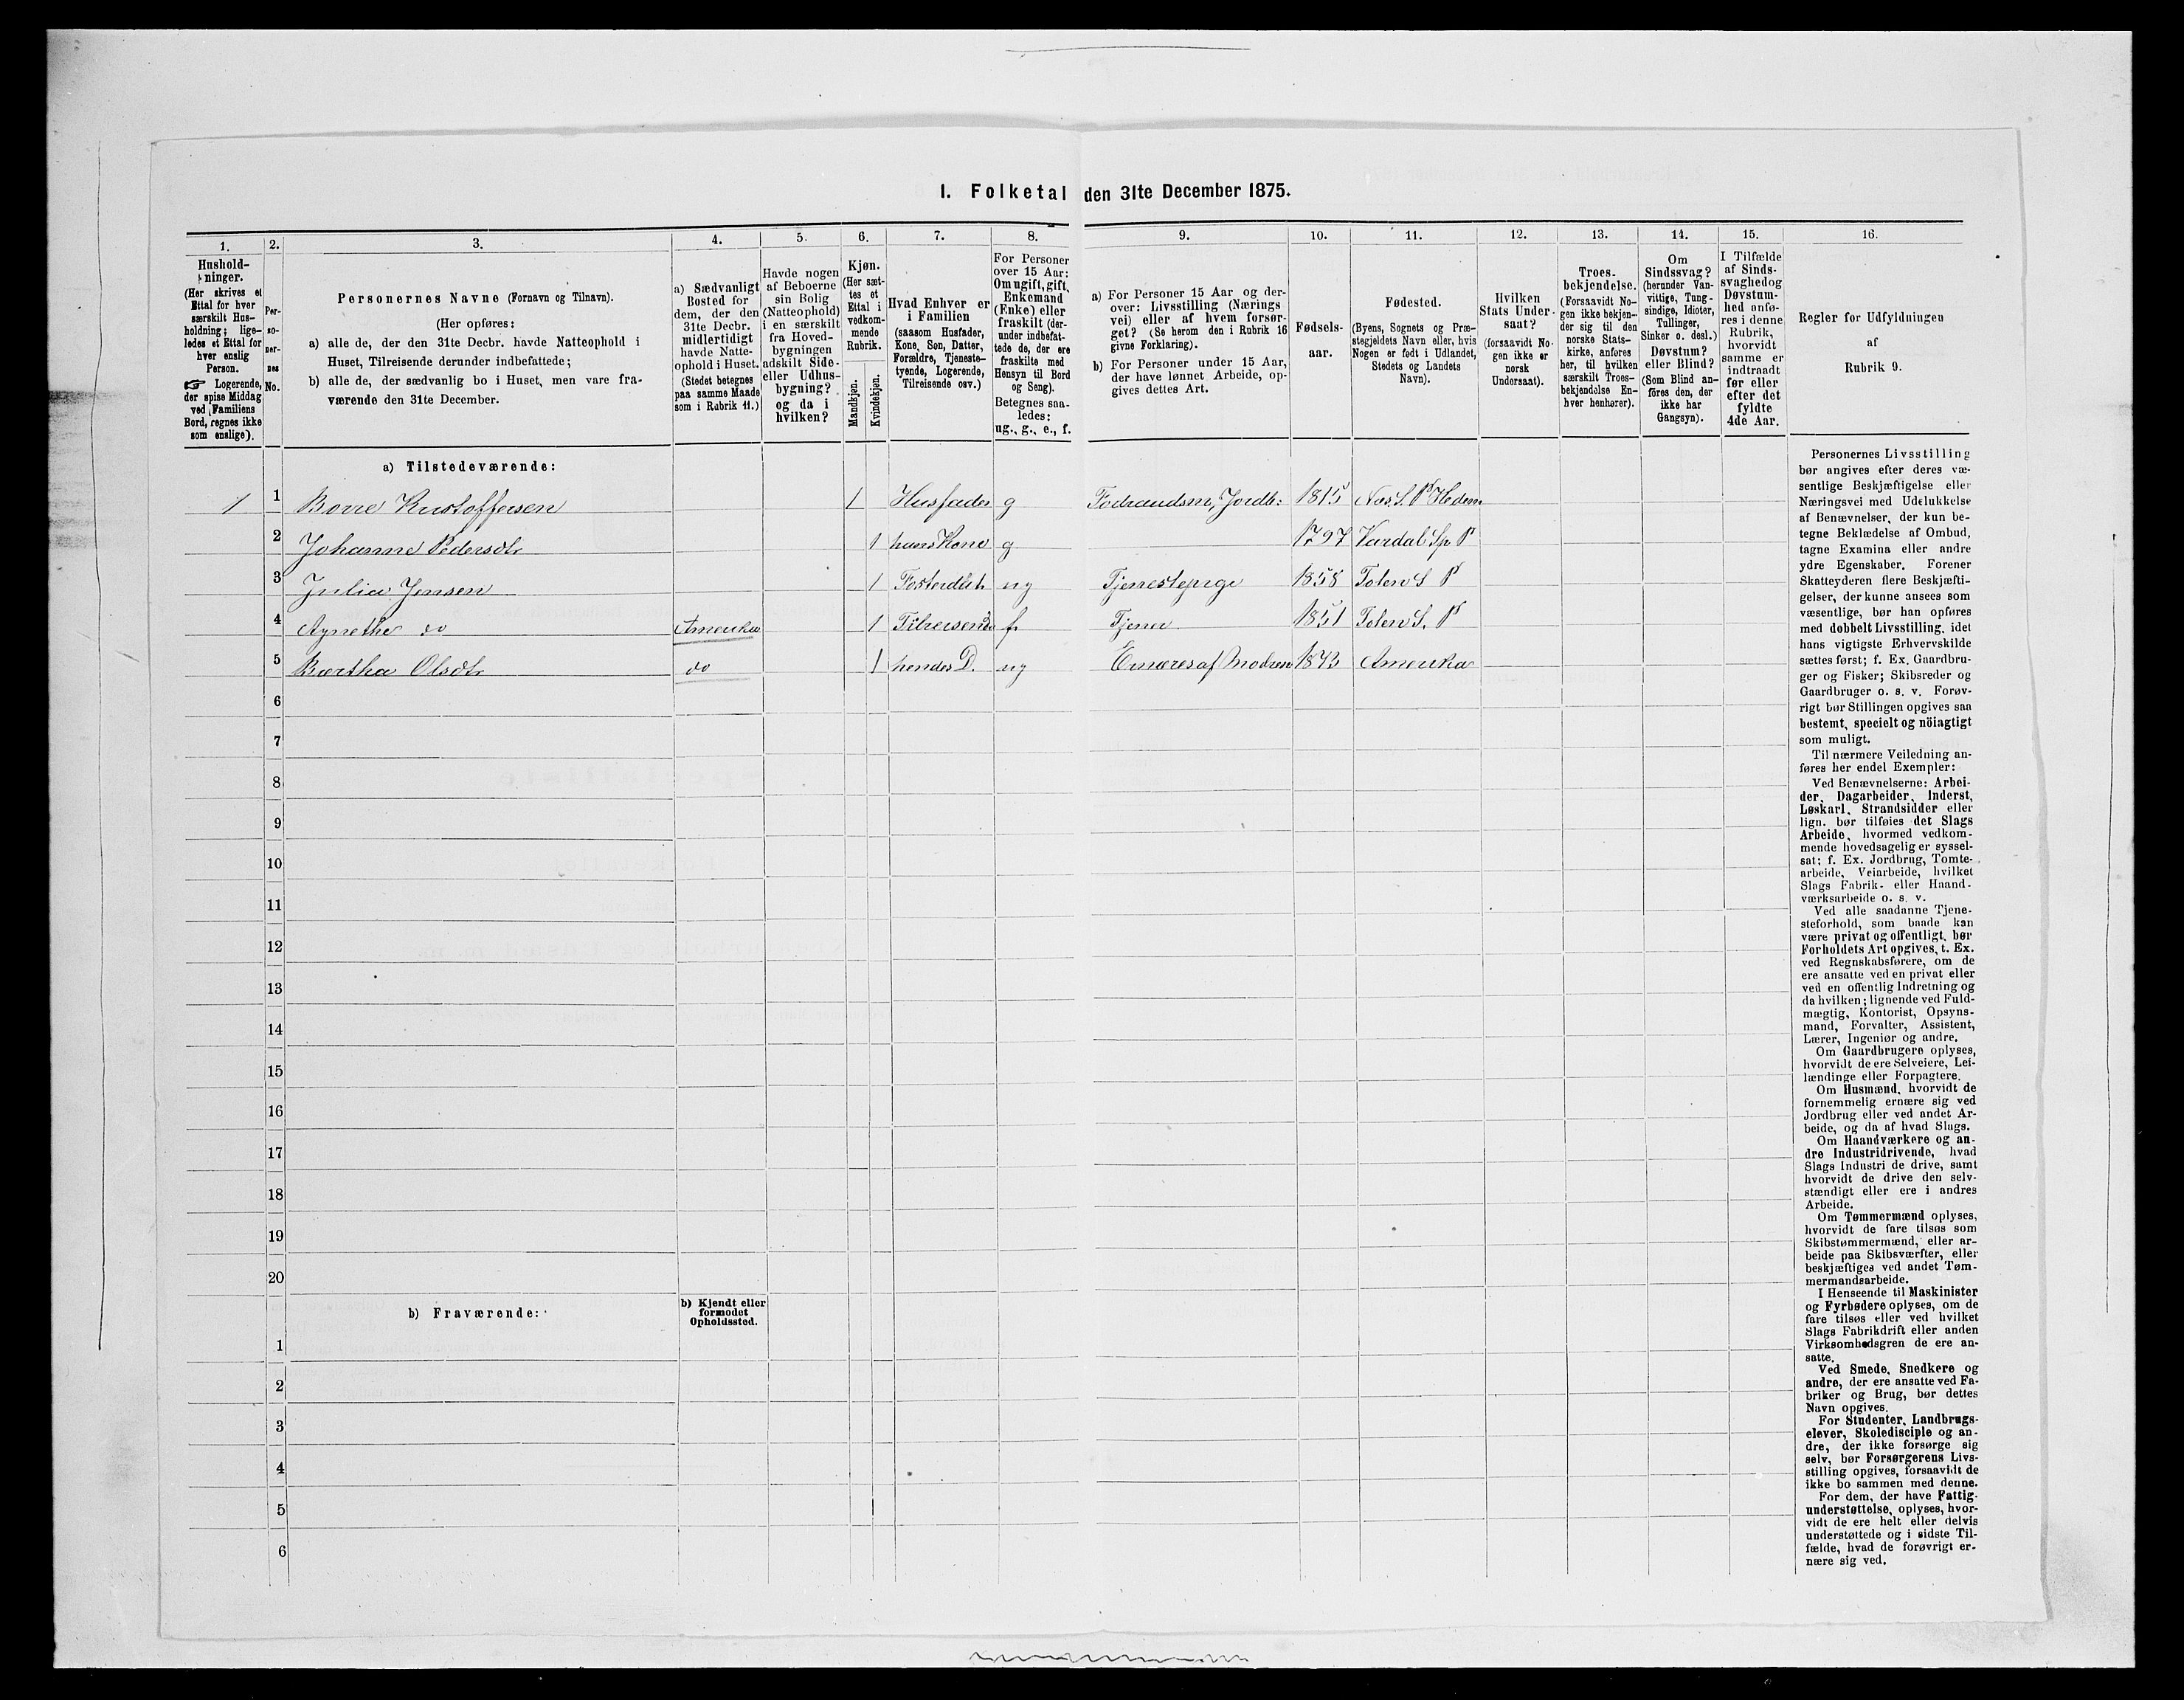 I. Folketal den 31te December 1875.
1. 2. 3. 4. 5. 6. 7. 8. 9. 10. 11. 12. 13. 14. 15. 16.
Hushold-
ninger.
(Her skrives et
Ettal for hver
særskilt Hus-
holdning; lige-
ledes et Ettal for
hver enslig
Person.
☞ Logerende,
der spise Middag
ved Familiens
Bord, regnes ikke
som enslige).
Per-
so-
ner-
nes
No.
Personernes Navne (Fornavn og Tilnavn).
(Her opføres:
a) alle de, der den 31te Decbr. havde Natteophold i
Huset, Tilreisende derunder indbefattede;
b) alle de, der sædvanlig bo i Huset, men vare fra-
værende den 31te December.
a) Sædvanligt
Bosted for
dem, der den
31te Decbr.
midlertidigt
havde Natte-
ophold i Huset.
(Stedet betegnes
paa samme Maade
som i Rubrik 11.)
Havde nogen
af Beboerne
sin Bolig
(Natteophold)
i en særskilt
fra Hoved-
bygningen
adskilt Side-
eller Udhus-
bygning?
og da i
hvilken?
Kjøn.
(Her sæt-
tes et
Ettal i
vedkom-
mende
Rubrik.
Mandkjøn.
Kvindekjøn.
Hvad Enhver er
i Familien
(saasom Husfader,
Kone, Søn, Datter,
Forældre, Tjeneste-
tyende, Logerende,
Tilreisende osv.)
For Personer
over 15 Aar:
Om ugift, gift,
Enkemand
(Enke) eller
fraskilt (der-
under indbefat-
tede de, der ere
fraskilte med
Hensyn til Bord
og Seng).
Betegnes saa-
ledes:
ug., g., e., f.
a) For Personer 15 Aar og der-
over: Livsstilling (Nærings
vei) eller af hvem forsør-
get? (Se herom den i Rubrik 16
givne Forklaring).
b) For Personer under 15 Aar,
der have lønnet Arbeide, op-
gives dettes Art.
Fødsels-
aar.
Fødested.
(Byens, Sognets og Præ-
stegjeldets Navn eller, hvis
Nogen er født i Udlandet,
Stedets og Landets
Navn).
Hvilken
Stats Under-
saat?
(forsaavidt No-
gen ikke er
norsk
Undersaat).
Troes-
bekjendelse.
(Forsaavidt No-
gen ikke bekjen-
der sig til den
norske Stats-
kirke, anføres
her, til hvilken
særskilt Troes-
bekjendelse En-
hver henhører).
Om
Sindssvag?
(herunder Van-
vittige, Tung-
sindige, Idioter,
Tullinger,
Sinker o. desl.)
Døvstum?
eller Blind?
(Som Blind an-
føres den, der
ikke har
Gangsyn).
I Tilfælde
af Sinds-
svaghed og
Døvstum-
hed anfø-
res i denne
Rubrik,
hvorvidt
samme er
indtraadt
før eller
efter det
fyldte
4de Aar.
Regler for Udfyldningen
af
Rubrik 9.
a) Tilstedeværende:
1 1 Borre Kristoffersen 1 Husfader g Jordb: 1815 Næs S. P Hedem
2 Johanne Pedersdtr 1 hans Kone g 1797 Vardal Sp P
3 Julia Jensen 1 ug Tjenestepige 1858 Toten S P
4 Agnethe do Amerika 1 f Tjener 1851 Toten S. P
5 Bertha Olsdtr do 1 hendes D. ug af Modren Amerika
6
7
8
9
10
11
12
13
14
15
16
17
18
19
20
b) Fraværende:
b) Kjendt eller
formodet
Opholdssted.
1
2
3
4
5
6
Personernes Livsstilling
bør angives efter deres væ-
sentlige Beskjæftigelse eller
Næringsvei med Udelukkelse
af Benævnelser, der kun be-
tegne Beklædelse af Ombud,
tagne Examina eller andre
ydre Egenskaber. Forener
Skatteyderen flere Beskjæfti-
gelser, der kunne ansees som
væsentlige, bør han opføres
med dobbelt Livsstilling, idet
hans vigtigste Erhvervskilde
sættes først; f. Ex. Gaardbru-
ger og Fisker; Skibsreder og
Gaardbruger o. s. v. Forøv-
rigt bør Stillingen opgives saa
bestemt, specielt og nöiagtigt
som muligt.
Til nærmere Veiledning an-
føres her endel Exempler:
Ved Benævnelserne: Arbei-
der, Dagarbeider, Inderst,
Løskarl, Strandsidder eller
lign. bør tilføies det Slags
Arbeide, hvormed vedkom-
mende hovedsagelig er syssel-
sat; f. Ex. Jordbrug, Tomte-
arbeide, Veiarbeide, hvilket
Slags Fabrik- eller Haand-
værksarbeide o. s. v.
Ved alle saadanne Tjene-
steforhold, som baade kan
være privat og offentligt, bør
Forholdets Art opgives, t. Ex.
ved Regnskabsførere, om de
ere ansatte ved en privat eller
ved en offentlig Indretning og
da hvilken; lignende ved Fuld-
mægtig, Kontorist, Opsyns-
mand, Forvalter, Assistent,
Lærer, Ingeniør og andre.
Om Gaardbrugere oplyses,
hvorvidt de ere Selveiere, Lei-
lændinge eller Forpagtere.
Om Husmænd, hvorvidt de
fornemmelig ernære sig ved
Jordbrug eller ved andet Ar-
beide, og da af hvad Slags.
Om Haandværkere og an-
dre Industridrivende, hvad
Slags Industri de drive, samt
hvorvidt de drive den selv-
stændigt eller ere i andres
Arbeide.
Om Tømmermænd oplyses,
hvorvidt de fare tilsøs som
Skibstømmermænd, eller ar-
beide paa Skibsværfter, eller
beskjæftiges ved andet Tøm-
mermandsarbeide.
I Henseende til Maskinister
og Fyrbødere oplyses, om de
fare tilsøs eller ved hvilket
Slags Fabrikdrift eller anden
Virksomhedsgren de ere an-
satte.
Ved Smede, Snedkere og
andre, der ere ansatte ved Fa-
briker og Brug, bør dettes
Navn opgives.
For Studenter, Landbrugs-
elever, Skoledisciple og an-
dre, der ikke forsørge sig
selv, bør Forsørgerens Livs-
stilling opgives, forsaavidt de
ikke bo sammen med denne.
For dem, der have Fattig-
understøttelse, oplyses, hvor-
vidt de ere helt eller delvis
understøttede og i sidste Til-
fælde, hvad de forøvrigt er-
nære sig ved.